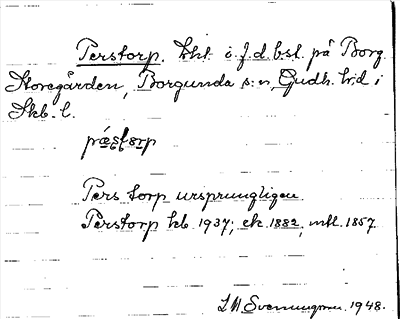 Perstorp. Lht i f.d. bst. på Borg
Storegården, Borgunda s:n, Gudh. hd i
Skb. l.
Pers torp ursprungligen
Perstorp kb. 1937; ek. 1882, mtl. 1857.
I M Svenungsson. 1948.